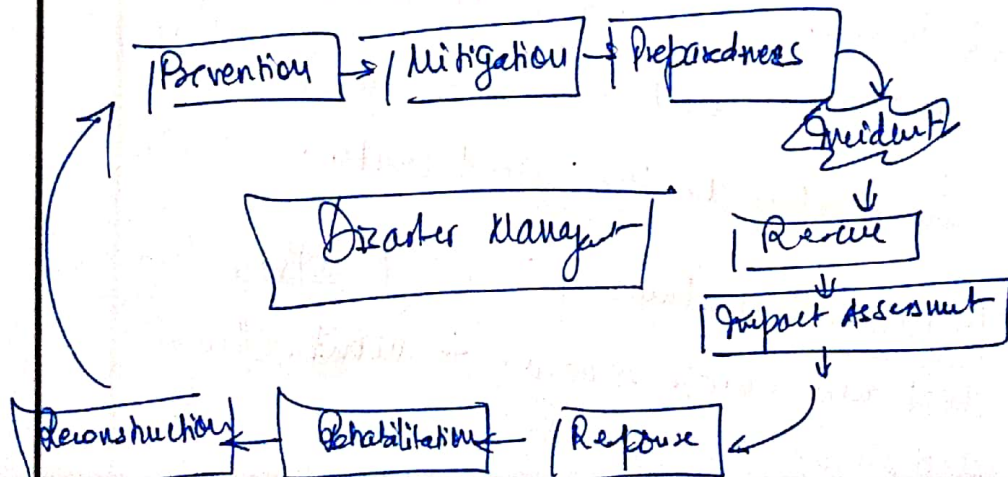 Prevention → Mitigation → Preparedness
Incident
Disaster Managmt
Rescue
Impact Assessment
Reconstruction ← Rehabilitation ← Response